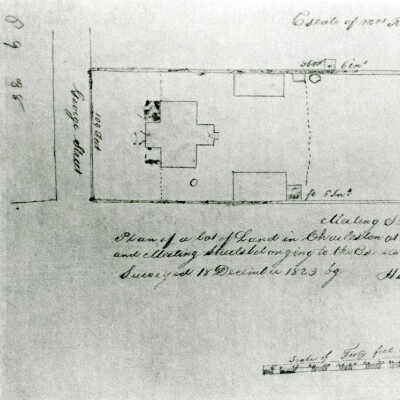 Estate of mrs
6 ins
George Street
100 feet
ft 6 ins
Meeting S
Plan of a lot of Land in Charleston at
and Meeting Streets belonging to the Es
Surveyed 18 December 1823 by
Scale of Forty feet